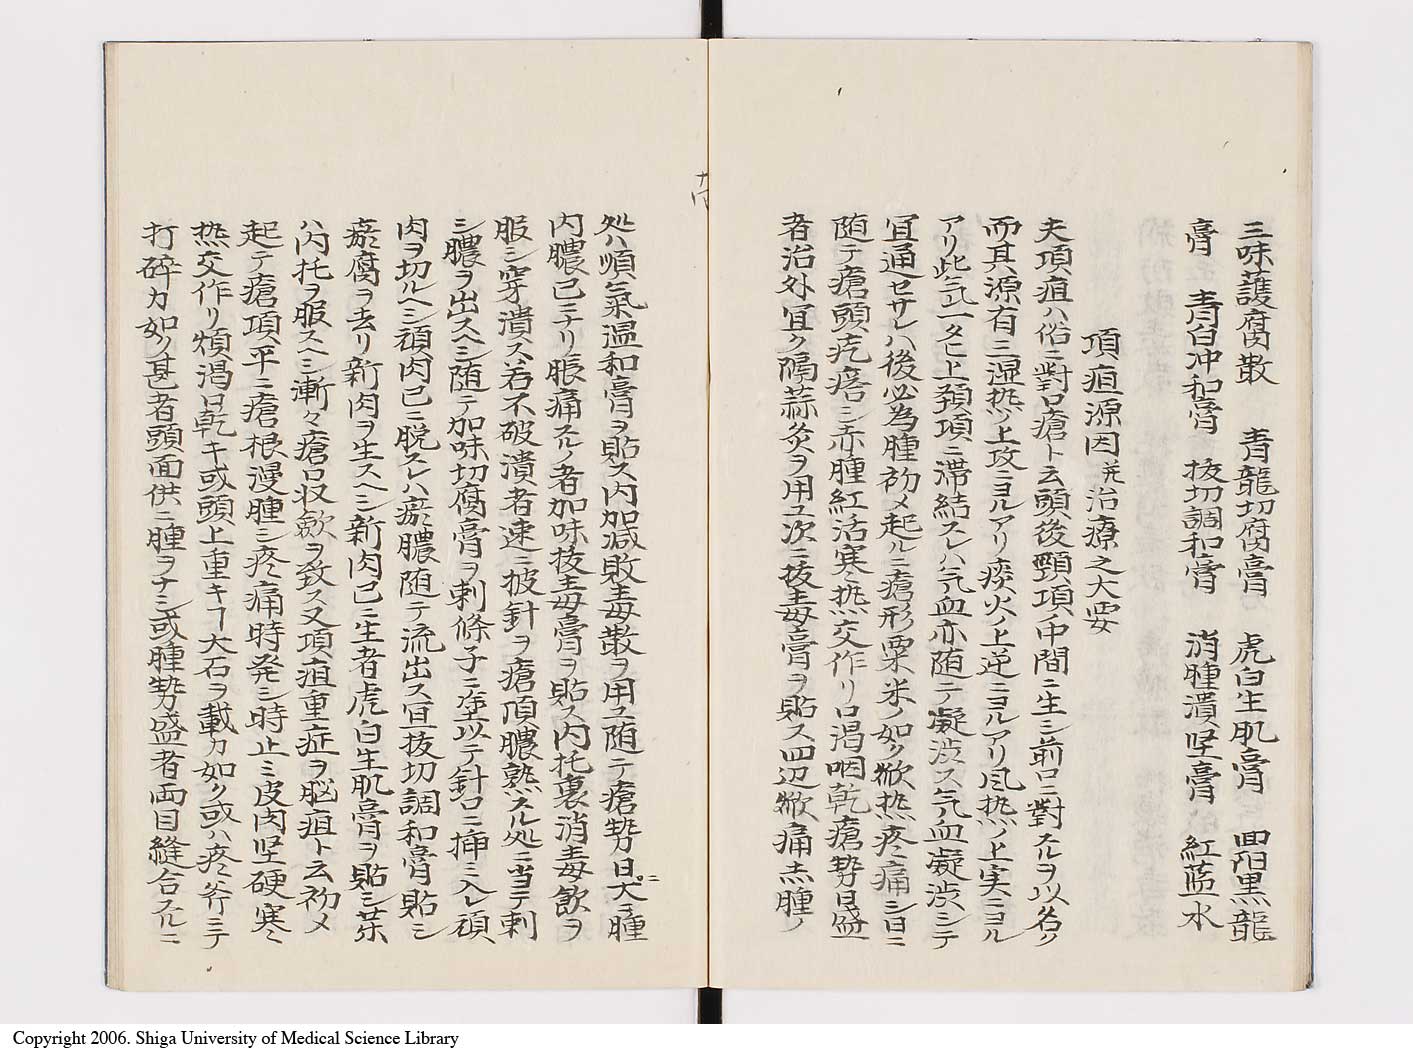 三味護腐散　青龍切腐膏　虎白生肌膏　回陽黒龍
膏　青白冲和膏　抜切調和膏　消腫潰坚膏　紅蓝水
項疽源因并治療之大要
夫項疽ハ俗ニ對口瘡ト云頭後頸項ノ中間ニ生シ前口ニ對スルヲ以名ク
而其源有二湿热ノ上攻ニヨルアリ痰火ノ上逆ニヨルアリ風热ノ上実ニヨル
アリ此气一タヒ上頚項ニ滞結スレハ气血亦随テ凝渋ス气血凝渋シテ
宣通セサレハ後必為腫初メ起ルニ瘡形粟米ノ如ク焮热疼痛シ日ニ
随テ瘡頭疙瘩シ赤腫紅活寒热交作リ口渇咽乾瘡势日盛
者治外宜ク隔蒜灸ヲ用ユ次ニ抜毒膏ヲ貼ス四辺焮痛赤腫ノ
処ハ順氣温和膏ヲ貼ス内加減敗毒散ヲ用ユ随テ瘡势日ニ大ヲ腫
内膿已ニナリ脹痛スルノ者加味抜毒膏ヲ貼ス内托裏消毒飲ヲ
服シ穿潰ス若不破潰者速ニ披針ヲ瘡頂膿熟スル処ニ当テ刺
シ膿ヲ出スヘシ随テ加味切腐膏ヲ剌條子ニ塗以テ針口ニ挿ミ入レ頑
肉ヲ切ルヘシ頑肉已ニ脱スレハ瘀膿随テ流出ス宜抜切調和膏貼シ
瘀腐ヲ去リ新肉ヲ生スヘシ新肉已ニ生者虎白生肌膏ヲ貼シ
ハ内托ヲ服スヘシ漸々瘡口収斂ヲ致ス又項疽重症ヲ脳疽ト云初メ
起テ瘡項平ニ瘡根漫腫シ疼痛時発シ時止ミ皮肉坚硬寒ミ
热交作リ煩渇口乾キ或頭上重キヿ大石ヲ載カ如ク或ハ疼斧ミテ
打碎カ如ノ甚者頭面供ニ腫ヲナシ或腫势盛者両目縫合スルニ
Copyright 2006. Shiga University of Medical Science Library